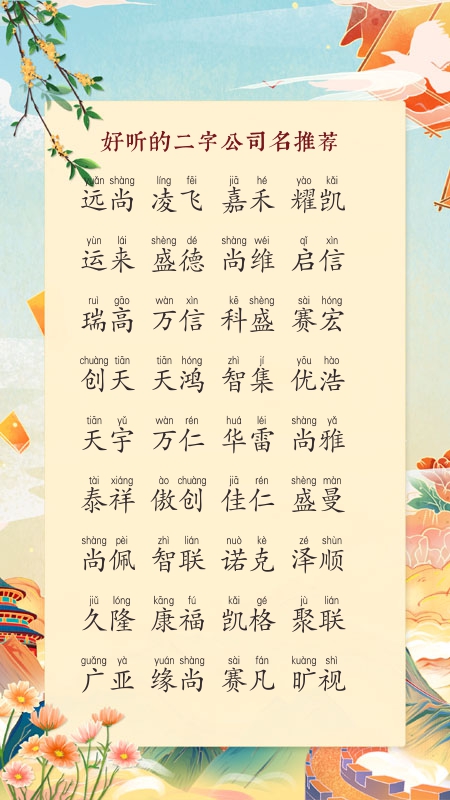 好听的二字公司名推荐
yuǎn shàng líng fēi jiā hé yào kǎi
远尚 凌飞 嘉禾 耀凯
yùn lái shèng dé shàng wéi qǐ xìn
运来 盛德 尚维 启信
ruì gāo wàn xìn kē shèng sài hóng
瑞高 万信 科盛 赛宏
chuàng tiān tiān hóng zhì jí yōu hào
创天 天鸿 智集 优浩
tiān yǔ wàn rén huá léi shàng yǎ
天宇 万仁 华雷 尚雅
tài xiáng ào chuàng jiā rén shèng màn
泰祥 傲创 佳仁 盛曼
shàng pèi zhì lián nuò kè zé shùn
尚佩 智联 诺克 泽顺
jiǔ lóng kāng fú kǎi gé jù lián
久隆 康福 凯格 聚联
guǎng yà yuán shàng sài fán kuàng shì
广亚 缘尚 赛凡 旷视